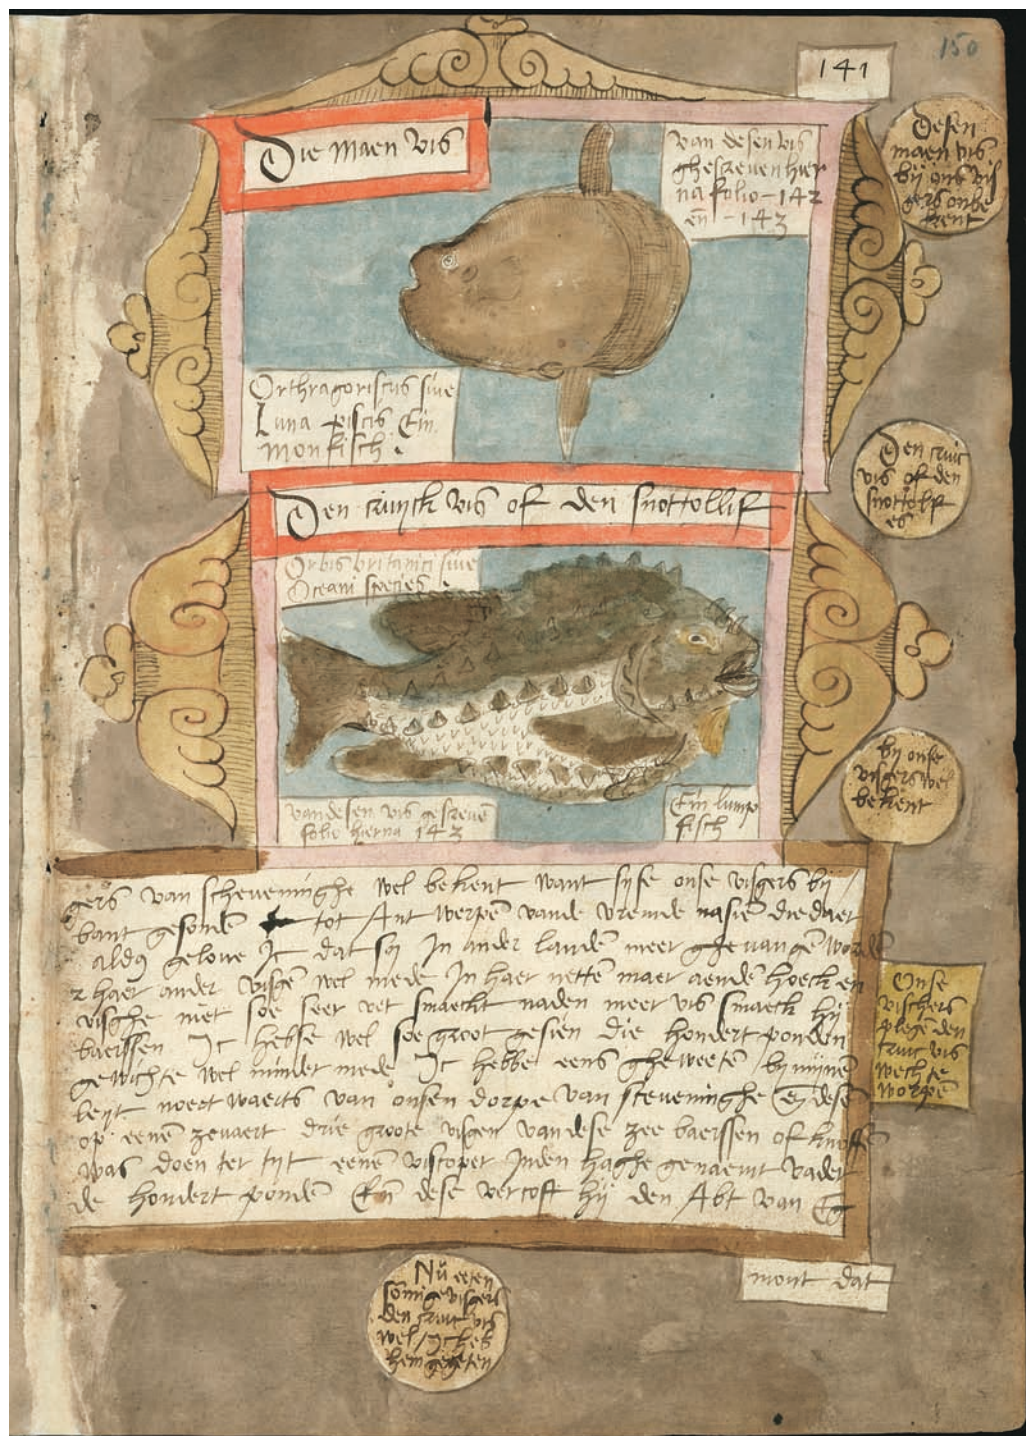 150
141
Die maen vis
van desen vis
ghescreven hier
na folio - 142
en̄ - 143
Desen
maen vis
bij ons vis
gers onbe
kent
Orthragoriscus sive
Luna piscis Ein
monfisch
Den cruyck vis of den snottollif
Den cruic
vis of den
snottolf
es
Orbis britanici sive
Oceani species
bij onse
visgers wel
bekent
van desen vis gescreve͞
folio hierna 143
Ein lump
fisch
gers van scheveninghe wel bekent want sijse onse visgers bij
bant gesonde͞ tot Antwerpe͞ vande vremde nasie͞ die daer
gelove Ic dat sij In ander lande͞ meer ghevange͞ worde͞
haer ander visge͞ wel mede In haer nette͞ maer aende͞ hoeck en
visghe niet soe seer vet smaeckt naden meer vis smaeck hij
baerssen Ic hebse wel soe groot gesien die hondert ponden
gewichte wel minder mede Ic hebbe eens gheweete͞ bij mijne͞
noort waerts van onsen dorpe van sceveninghe en̄ dese͞
op eene͞ zevaert drie groote visgen van dese zee baerssen of
was doen ter tijt eene͞ viscoper Inden haghe genaemt vader
de hondert ponde͞ En̄ dese vercoft hij den Abt van Eg
Onse
visschers
plege͞ den
cruic vis
wech te
worpe͞
mont dat
Nu eeten
somige visgers
den cruic vis
wel Ic heb
hem gegeten